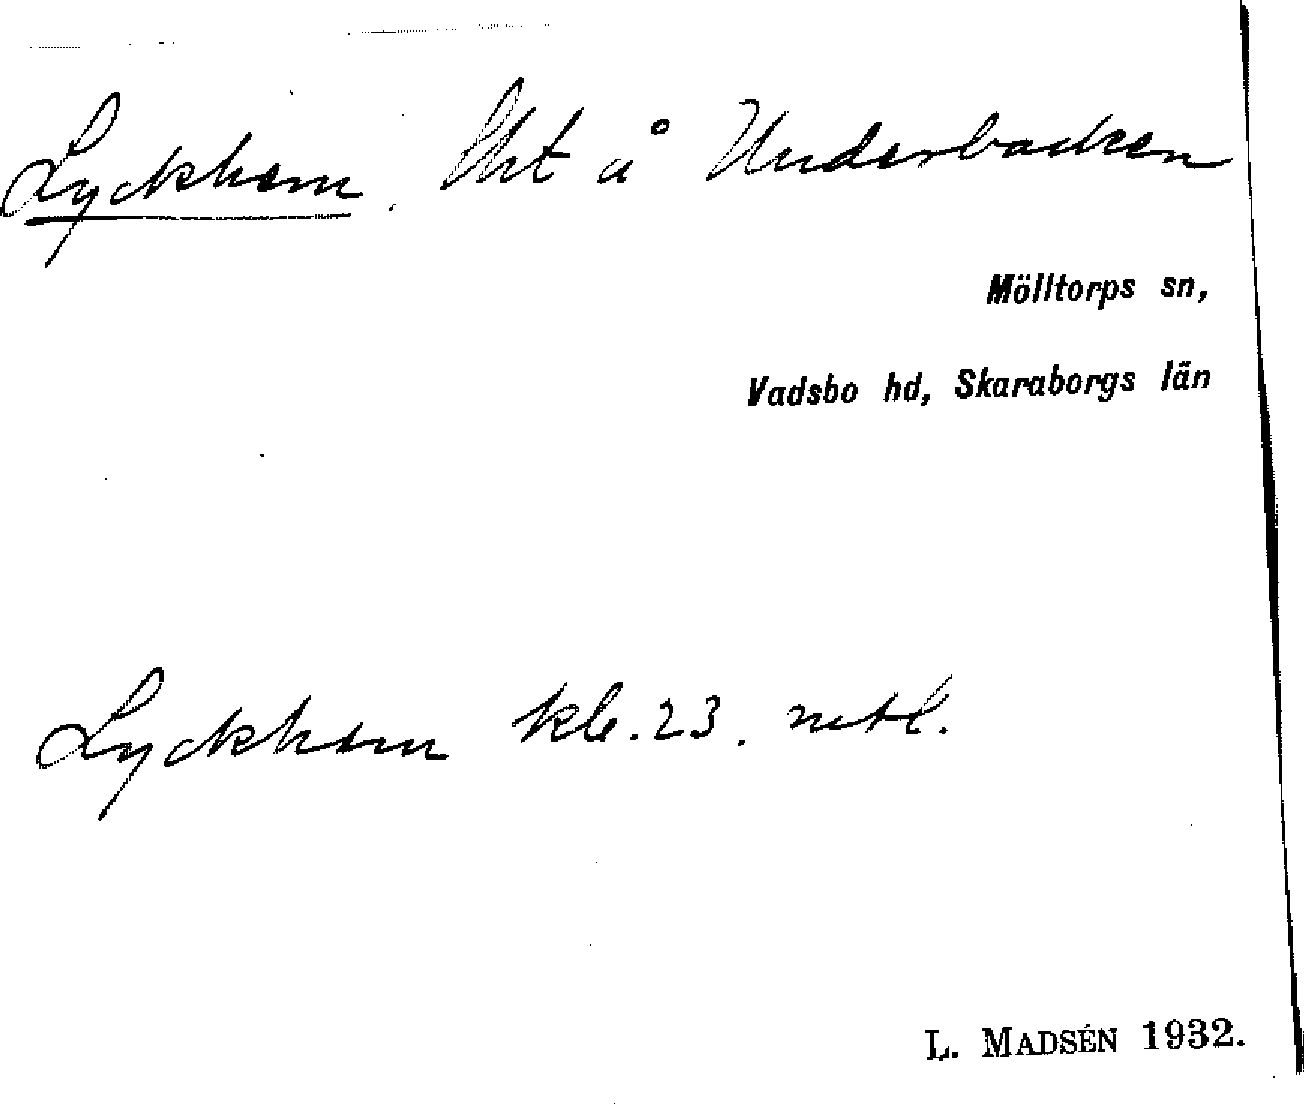 Lyckhem. lht å Underbacken
Mölltorps sn,
Vadsbo hd, Skaraborgs län
Lyckhem kbr.23. mtl.
L. MADSÉN 1932.